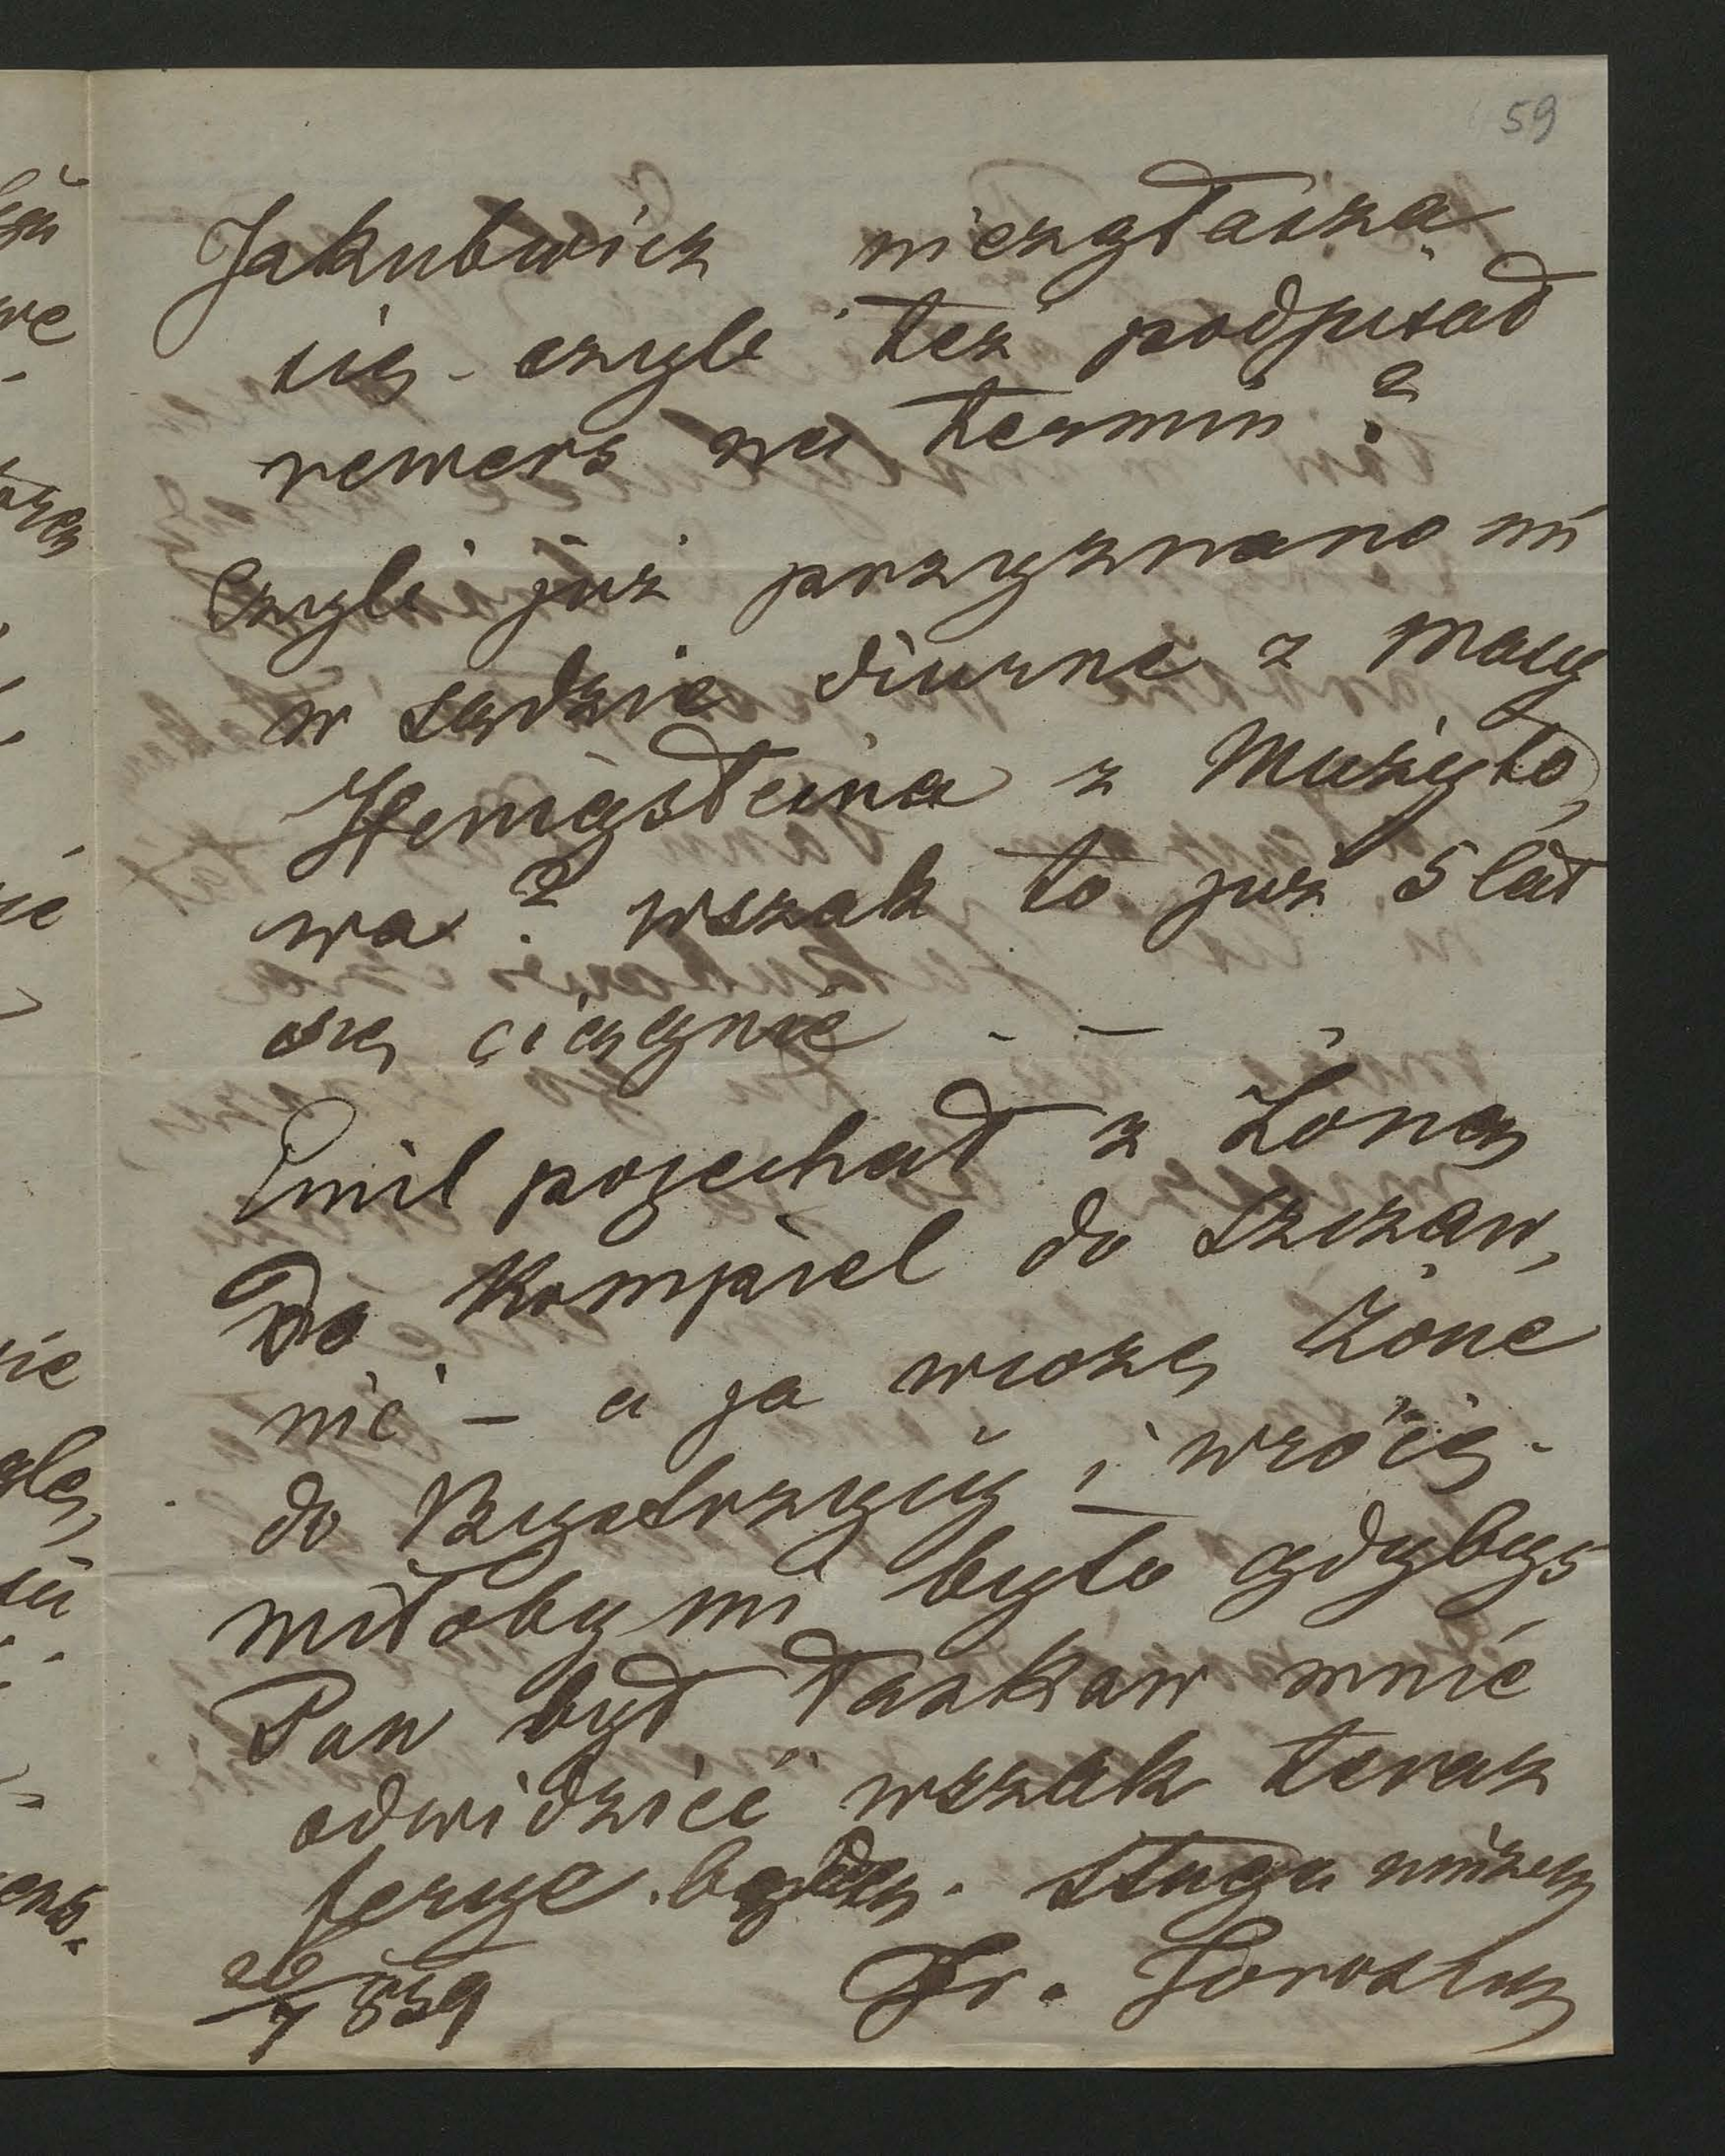 59
Jakubwicz niezgłasza
się - czyli też podpisał
rewers na termin?
Czyli już przyznano mi
w sądzie diurne z masy
Henigsteina z Mużyło,
wa? wszak to już 5 lat
się ciągnie - -
Emil pojechał z Żoną
Do Kompiel do Szczaw,
nic - a ja wiozę Żone
do Bystrzycy i wrócę -
miłoby mi było gdybyś
Pan był łaskaw mnie
odwidzieć wszak teraz
ferye będą. Sługa uniżeny
26/7 859 Fr.